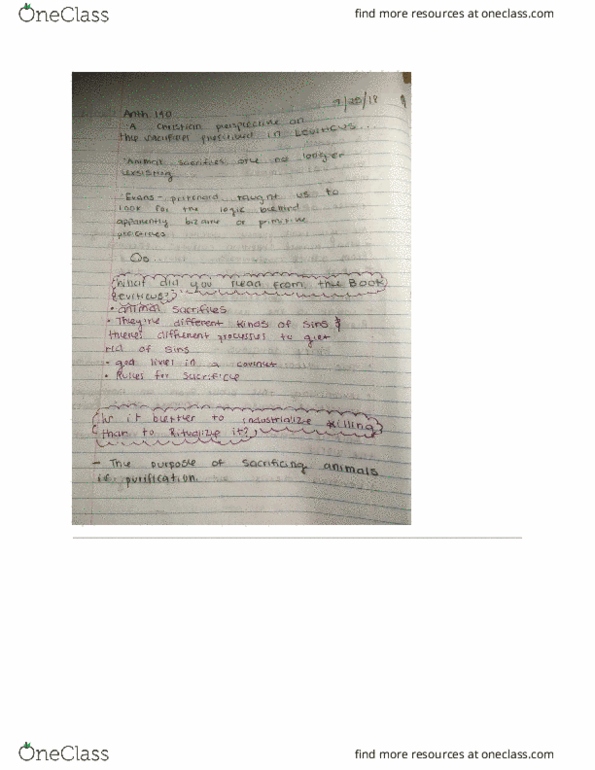 OneClass
find more resources at oneclass.com
7/25/18
Anth 140
·A christian perspective on
the sacrifices prescribed in Leviticus...
·Animal sacrifices are no longer
existing
·Evans-pritchard taught us to
look for the logic behind
apparently bizarre or primitive
practices
What did you read from the Book
Leviticus?
• animal sacrifies
• They're different kinds of sins &
there's different processes to get
rid of sins
• god lives in a
• Rules for sacrifice
Is it better to industrialize killing
than to Ritualize it?
- The purpose of sacrificing animals
is purification.
OneClass
find more resources at oneclass.com